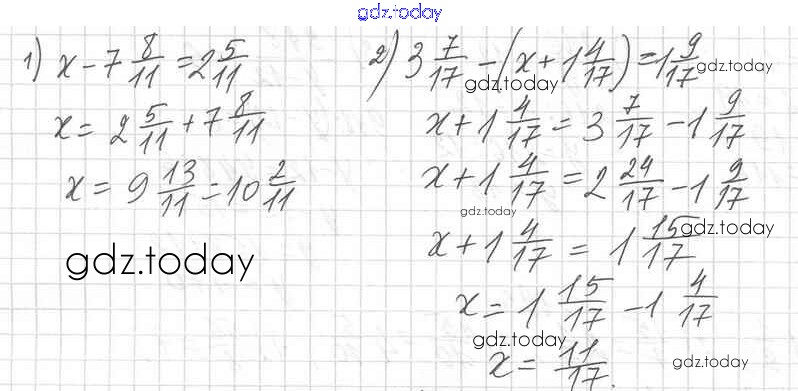 gdz.today
1) x - 7 8/11 = 2 5/11
x = 2 5/11 + 7 8/11
x = 9 13/11 = 10 2/11
gdz.today
2) 3 7/17 - (x + 1 4/17) = 1 9/17
gdz.today
gdz.today
x + 1 4/17 = 3 7/17 - 1 9/17
x + 1 4/17 = 2 24/17 - 1 9/17
gdz.today
gdz.today
x + 1 4/17 = 1 15/17
x = 1 15/17 - 1 4/17
gdz.today
x = 11/17.
gdz.today